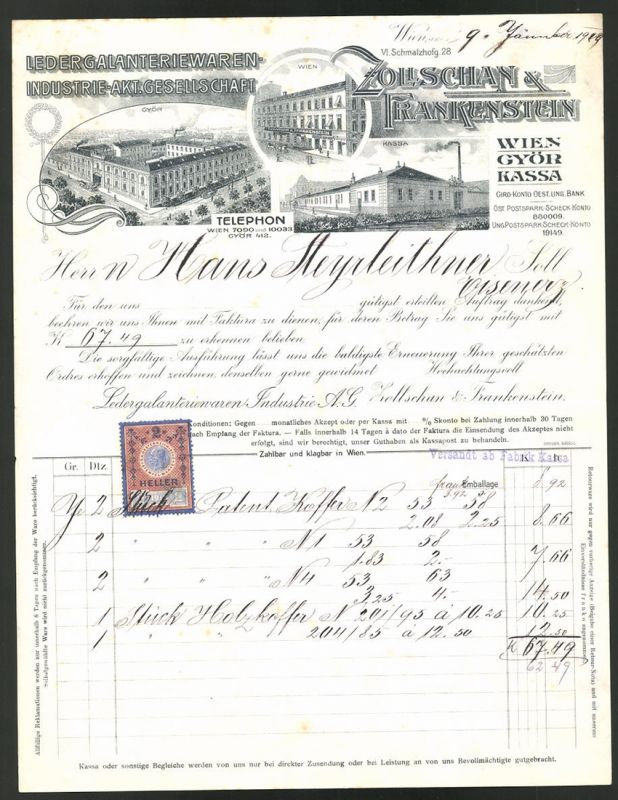 Wien, 9. Jänner 19
VI. Schmalzhofg. 28
LEDERGALANTERIEWAREN-
INDUSTRIE-AKT. GESELLSCHAFT
ZOLLSCHAN &
FRANKENSTEIN
GYÖR
WIEN
KASSA
WIEN
GYÖR
KASSA
GIRO-KONTO OEST. UNG. BANK
ÖST. POSTSPARK. SCHECK-KONTO
880009.
UNG. POSTSPARK. SCHECK-KONTO
19149.
TELEPHON
WIEN 7090 und 10033
GYÖR 412.
Herrn Hans Steyrleithner Soll
Eisenerz
Für den uns gütigst erteilten Auftrag dankend,
beehren wir uns Ihnen mit Faktura zu dienen, für deren Betrag Sie uns gütigst mit
K 67.49 zu erkennen belieben.
Die sorgfältige Ausführung lässt uns die baldigste Erneuerung Ihrer geschätzten
Ordres erhoffen und zeichnen, denselben gerne gewidmet Hochachtungsvoll
Ledergalanteriewaren-Industrie A.G. Zollschan & Frankenstein.
Konditionen: Gegen monatliches Akzept oder per Kassa mit % Skonto bei Zahlung innerhalb 30 Tagen
nach Empfang der Faktura. — Falls innerhalb 14 Tagen à dato der Faktura die Einsendung des Akzeptes nicht
erfolgt, sind wir berechtigt, unser Guthaben als Kassapost zu behandeln.
Zahlbar und klagbar in Wien.
Versandt ab Fabrik Kassa
HELLER
Gr. Dtz. Emballage K h
franko
3.92 8.92
2 Stück Patent Koffer N 2 53 58
2.08 2.25 8.66
2 " " " N 1 53 58
1.83 2.- 7.66
2 " " " N 4 53 63
3.25 4.- 14.50
1 Stück Holzkoffer N 201/95 à 10.25 10.25
1 " " 204/85 a 12.50 12.50
K 67.49
62 49
Allfällige Reklamationen werden nur innerhalb 8 Tagen nach Empfang der Ware berücksichtigt.
Selbstgewählte Ware wird nicht zurückgenommen.
Retourware wird nur gegen vorherige Anzeige (Beigabe einer Retour-Nota) und mit unserem
Einverständnisse franko angenommen.
Kassa oder sonstige Begleiche werden von uns nur bei direkter Zusendung oder bei Leistung an von uns Bevollmächtigte gutgebracht.